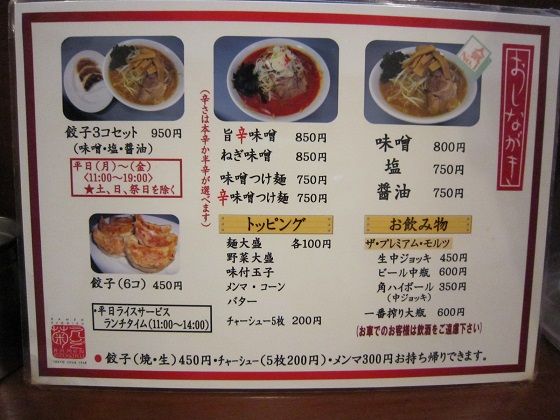 おしながき
餃子3コセット 950円
(味噌・塩・醤油)
平日(月)～(金)
<11:00～19:00>
★土、日、祭日を除く
餃子(6コ) 450円
・平日ライスサービス
ランチタイム(11:00～14:00)
(辛さは本辛か半辛が選べます)
旨辛味噌 850円
ねぎ味噌 850円
味噌つけ麺 750円
辛味噌つけ麺 750円
トッピング
麺大盛 各100円
野菜大盛
味付玉子
メンマ・コーン
バター
チャーシュー5枚 200円
味噌 800円
塩 750円
醤油 750円
お飲み物
ザ・プレミアム・モルツ
生中ジョッキ 450円
ビール中瓶 600円
角ハイボール 350円
(中ジョッキ)
一番搾り大瓶 600円
(お車でのお客様は飲酒をご遠慮下さい)
●餃子(焼・生)450円・チャーシュー(5枚200円)・メンマ300円お持ち帰りできます。